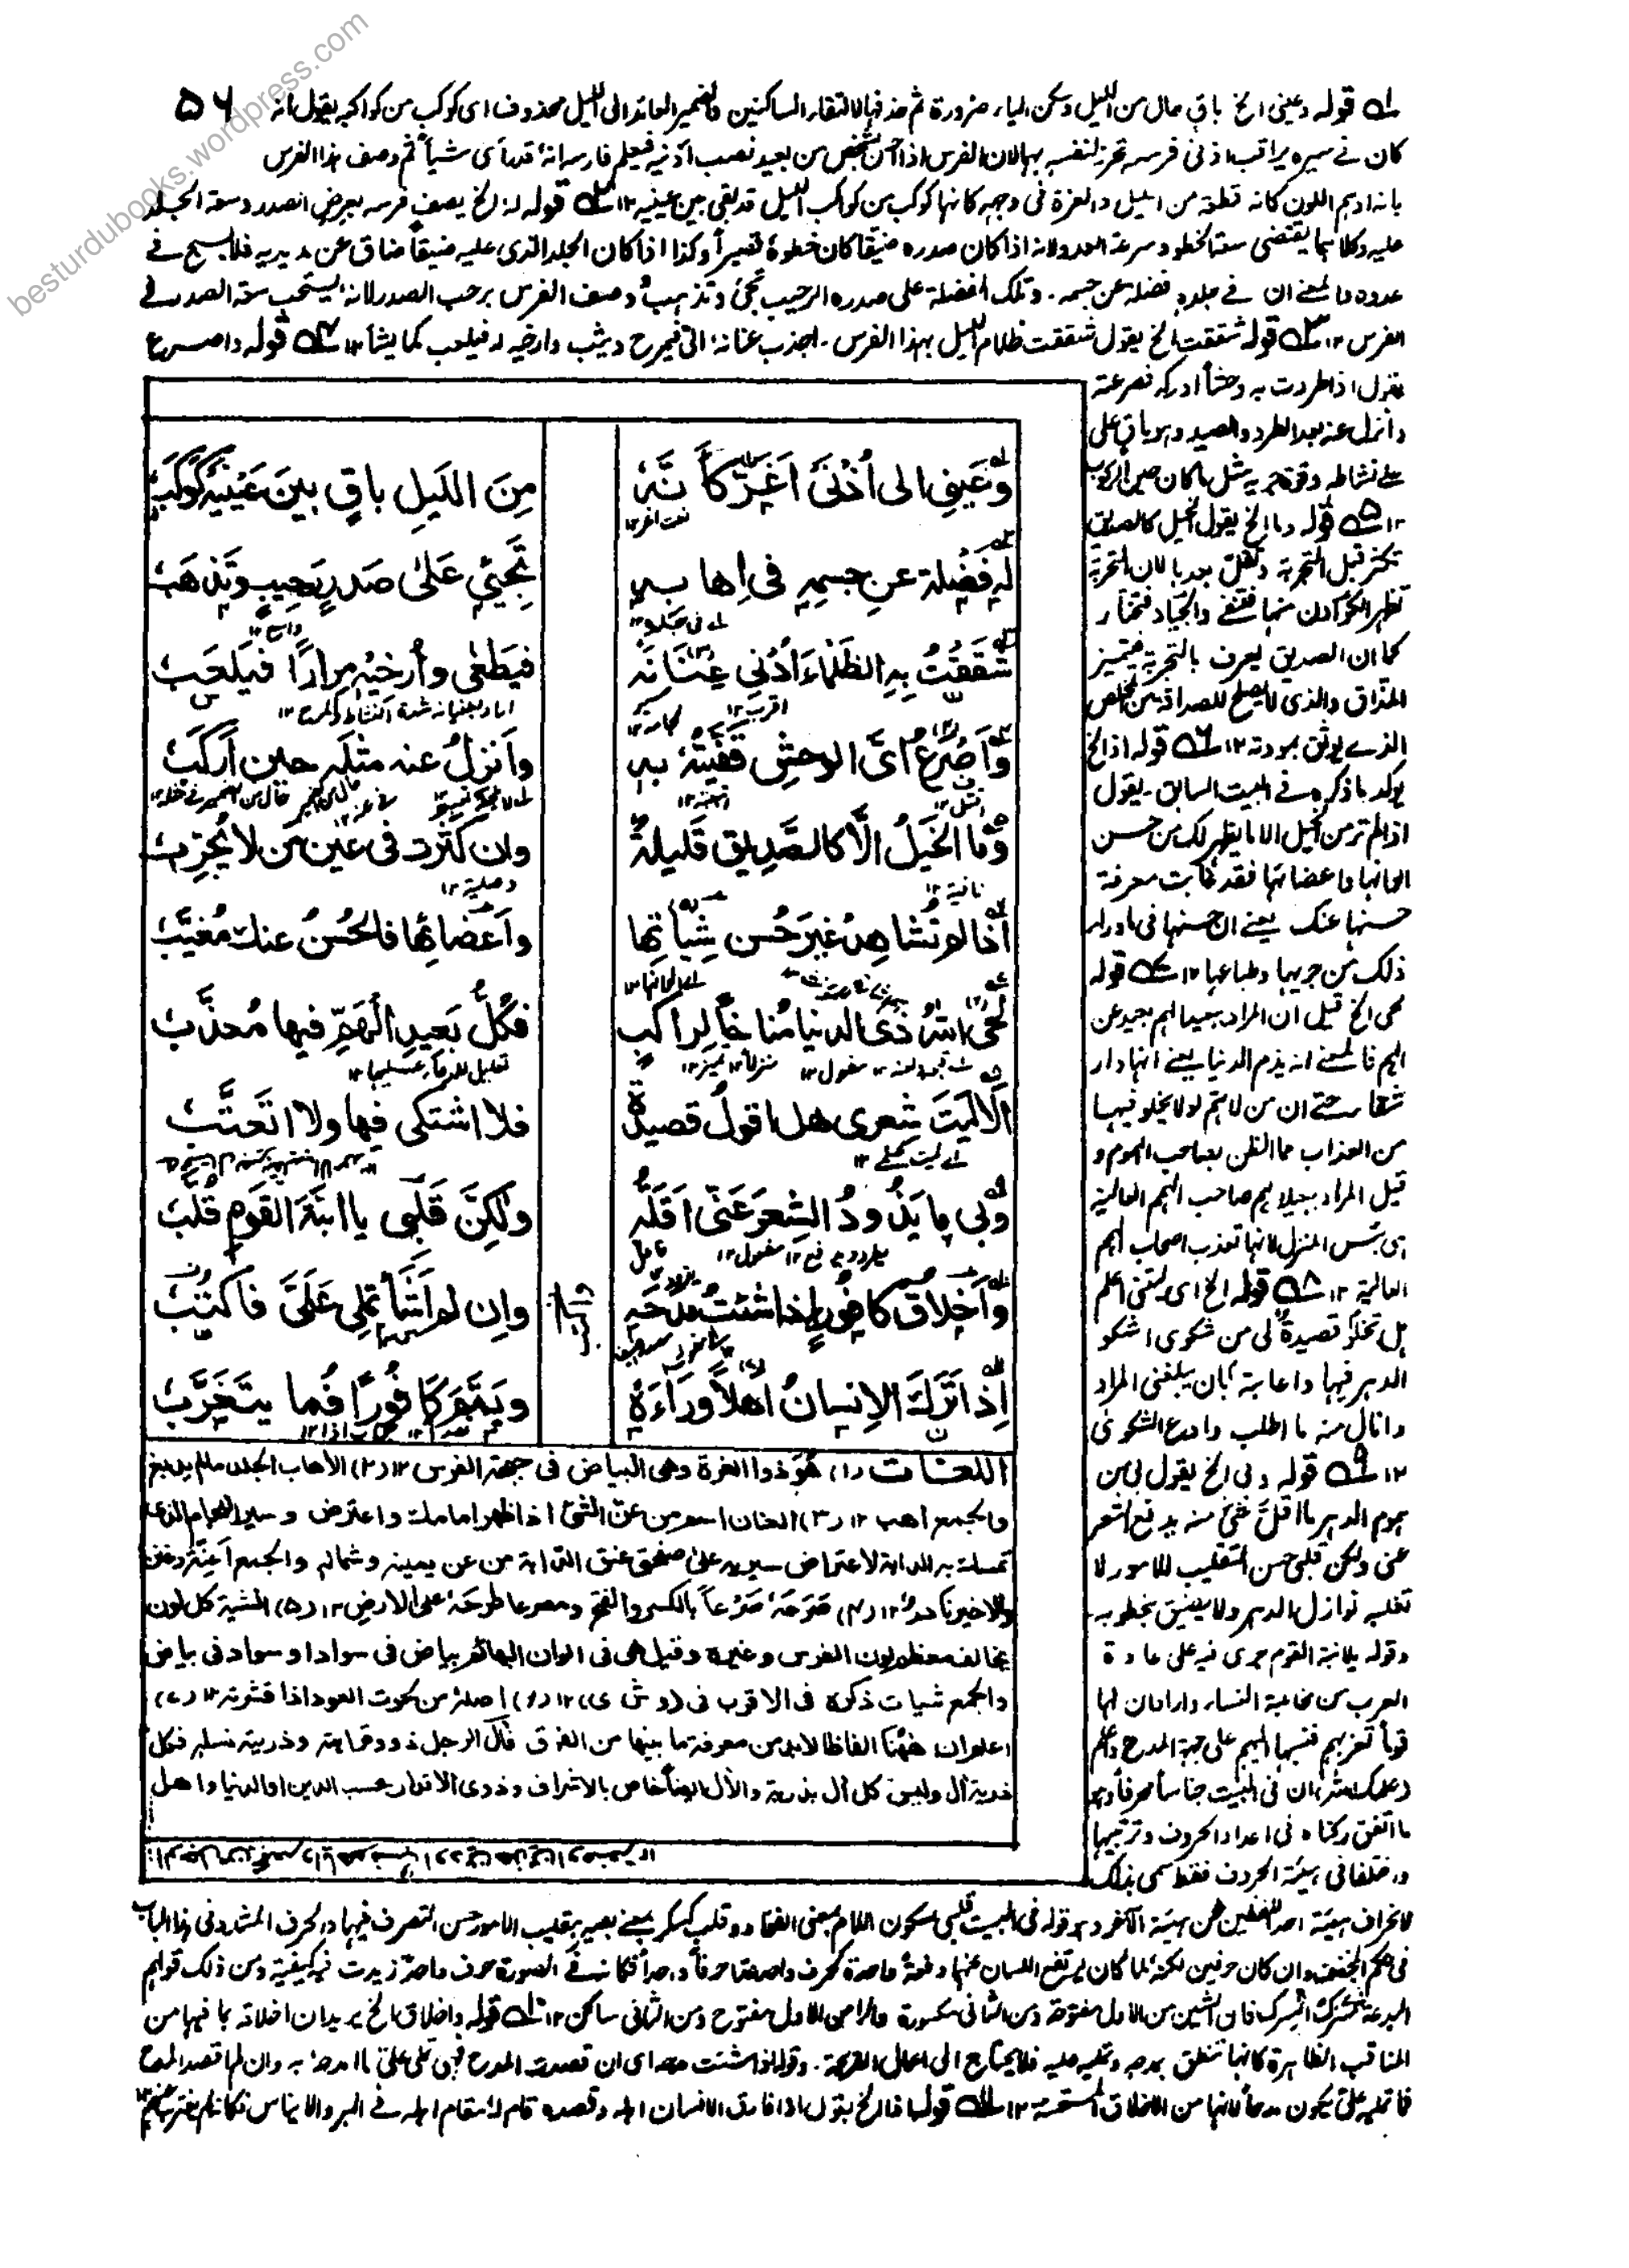 besturdubooks.wordpress.com
۵۶
۱ قوله وعيني الخ باق حال من الليل وسكن الياء ضرورة ثم حذفها لالتقاء الساكنين والضمير العائد الى الليل محذوف اى كوكب من كواكبه يقول انه
كان في سيره يراقب اذنى فرسه تحرزا لنفسه بهما لان الفرس اذا احس بشخص من بعيد نصب اذنيه فيعلم فارسه انه قد رأى شيأ ثم وصف هذا الفرس
بانه ادهم اللون كانه قطعة من الليل والغرة في وجهه كانها كوكب من كواكب الليل قد بقى بين عينيه ۱۲ ۲ قوله له الخ يصف فرسه بعرض الصدر وسعة الجلد
عليه وكلاهما يقتضى سعة الخطو وسرعة العدو لانه اذا كان صدره ضيقا كان خطوه قصيرا وكذا اذا كان الجلد الذى عليه ضيقا ضاق عن مد يديه فلا يسبح في
عدوه فالمعنے ان في جلده فضلة عن جسمه۔ وتلك الفضلة على صدره الرحيب تجئ وتذهب وصف الفرس برحب الصدر لانه يستحب سعة الصدر في
الفرس ۱۲ ۳ قوله شققت الخ يقول شققت ظلام الليل بهذا الفرس۔ اجذب عنانه الىّ فيمرح ويثب وارخيه له فيلعب كما يشاء ۱۲ ۴ قوله واصرع
يقول اذا طردت به وحشا ادركه فصرعته
وانزل عنه بعد الطرد والصيد وهو باق على
علے نشاطه وقوة جريه مثل ما كان حين الركوب
۱۲ ۵ قوله وما الخ يقول الخيل كالصديق
تكثر قبل التجربة وتقل بعدها لان التجربة
تظهر الكوادن منها فتنفى والجياد فتختار
كما ان الصديق يعرف بالتجربة فيتميز
المذاق والذى لا يصلح للصداقة من المخلص
الذے يوثق بمودته ۱۲ ۶ قوله اذا الخ
يوكد ما ذكره في البيت السابق۔ يقول
اذا لم تر من الخيل الا ما يظهر لك من حسن
الوانها واعضائها فقد غابت معرفة
حسنها عنك يعنے ان حسنها فى ما وراء
ذلك من جريها وطباعها ۱۲ ۷ قوله
لحى الخ قيل ان المراد ببعيد الهم بعيد عن
الهم فالمعنے انه يذم الدنيا يعنے انها دار
شقاء حتے ان من لا يهتم لو لا يخلو فيها
من العذاب فما الظن بصاحب الهموم و
قيل المراد ببعيد الهم صاحب الهمم العالية
اى بئس المنزل لانها تعذب اصحاب الهمم
العالية ۱۲ ۸ قوله الخ اى ليتنى اعلم
هل تخلو قصيدة لى من شكوى اشكو
الدهر فيها واعاتبه بان يبلغنى المراد
وانال منه ما اطلب وادع الشكوى
۱۲ ۹ قوله وبى الخ يقول بى من
هموم الدهر ما اقل شئ منه يدفع الشعر
عنى ولكن قلبى حسن التقليب للامور لا
تغلبه نوازل الدهر ولا يضيق بخطوبه۔
وقوله يا ابنة القوم جرى فيه على عادة
العرب من مخاطبة النساء واراد ان لها
قوما تعز بهم فنسبها اليهم على جهة المدح واعلم
ما اتفق ركناه فى اعداد الحروف وترتيبها
واختلفا فى هيئة الحروف فقط سمى بذلك
وَعَينِى الى اُذْنَىْ اَغَرَّ كَاَنَّهٗ
مِنَ اللَيلِ باقٍ بينَ عَيْنَيهِ كَوْكَبُ
نعت اغر ۱۲
لَهٗ فَضْلة عن جِسمِهٖ فى اِهابِهٖ
تَجِيئُ عَلىٰ صَدرٍ رَحِيبٍ وتَذهَبُ
اے فى جلده ۱۲
واسع ۱۲
شَقَقْتُ بِهِ الظَلْماءَ اُدْنِى عِنَانَهٗ
فيَطغٰى وأُرخيهِ مِرارًا فيَلعَبُ
اقرب ۱۲
لجامه ۱۲
اراد بطغيانه شدة النشاط والمرح ۱۲
وَاَصْرَعُ اىَّ الوحشِ قَفَّيتُهٗ بهِ
واَنزِلُ عنه مثلَهٗ حينَ أَركَبُ
اتبعته ۱۲
وَمَا الخَيلُ الَّا كالصَّدِيق قَليلةٌ
وان كَثُرت فى عَينِ مَن لا يُجَرِّبُ
نافية ۱۲
وصلية ۱۲
اذَا لم تُشاهِد غيرَ حُسنِ شِيَاتِها
واَعضائِها فالحُسنُ عنك مُغَيَّبُ
اے الوانها ۱۲
لَحَى اللهُ ذِى الدنيا مُناخًا لِراكبٍ
فكلُّ بَعيدِ الهَمِّ فيها مُعذَّبُ
منزلا ۱۲ تميز ۱۲
اَلَا لَيتَ شِعرى هل اقولُ قصيدةً
فلا اشتكى فيها ولا اتَعَتَّبُ
وَبِى ما يَذُودُ الشِعرَ عَنّى اَقَلُّهٗ
ولكِنَّ قَلبِى يا ابنَةَ القومِ قُلَّبُ
يطرد ويدفع ۱۲ مفعول ۱۲ فاعل
وَاَخلاقُ كافورٍ اِذا شئتُ مَدحَهٗ
وان لم اَشَأ تُملِى عَلَىَّ فاَكتُبُ
اِذا تَرَكَ الاِنسانُ اَهلًا وَراءَهٗ
ويَمَّمَ كَافُورًا فَما يتَغَرَّبُ
قصد ۱۲ جواب اذا ۱۲
اللغات (۱) هو ذوا الغرة وهى البياض فى جبهة الفرس ۱۲ (۲) الاهاب الجلد ما لم يدبغ
والجمع اهب ۱۲ (۳) العنان اسم من عنّ الشئ اذا ظهر امامك واعترض وسير اللجام الذى
تمسك به الدابة لاعتراض سيريه على صفحتى عنق الدابة من عن يمينه وشماله والجمع اَعِنّة وعنن
والاخير نادر ۱۲ (۴) صَرَعَهٗ صَرْعاً بالكسر والفتح ومصرعا طرحَهٗ على الارض ۱۲ (۵) الشية كل لون
يخالف معظم لون الفرس وغيره وقيل هى فى الوان البهائم بياض فى سواد او سواد فى بياض
والجمع شيات ذكره فى الاقرب فى (و ش ى) ۱۲ (۶) اصله من لحوت العود اذا قشرته ۱۲ (۷)
اعلم ان ههُنا الفاظا لا بد من معرفة ما بينها من الفرق فآل الرجل ذوو قرابته وذريته نسله فكل
ذرية آل وليس كل آل بذرية والآل ايضا خاص بالاشراف وذوى الاقدار بحسب الدين او الدنيا واهل
لانحراف هيئة احد اللفظين عن هيئة الآخر وهو قوله فى البيت قلبى بسكون اللام بمعنى الفؤاد وقلب كسكر بمعنے بصير بتقليب الامور حسن التصرف فيها والحرف المشدد فى هذا الباب
فى حكم المخفف وان كان حرفين لكنه لما كان يرتفع اللسان عنهما دفعة واحدة كحرف واحد عدّا حرفا واحدا فكانه في الصورة حرف واحد زيدت فيه كيفية ومن ذلك قولهم
البدعة شرك الشرك فان الشين من الاول مفتوحة ومن الثانى مكسورة والراء من الاول مفتوح ومن الثانى ساكن ۱۲ ۱۰ قوله واخلاق الخ يريد ان اخلاقه بما فيها من
المناقب الظاهرة كانها تنطق بمدحه وتمليه عليه فلا يحتاج الى اعمال القريحة۔ وقوله اذا شئت مدحه اى ان قصدت المدح فهى تملى علىّ ما امدحه به وان لم اقصد المدح
فما تمليه علىّ يكون مدحا لانها من الاخلاق المستحسنة ۱۲ ۱۱ قوله اذا الخ يقول اذا فارق الانسان اهله وقصده قام له مقام اهله في البر والايناس فكانه لم يغترب عنهم ۱۲